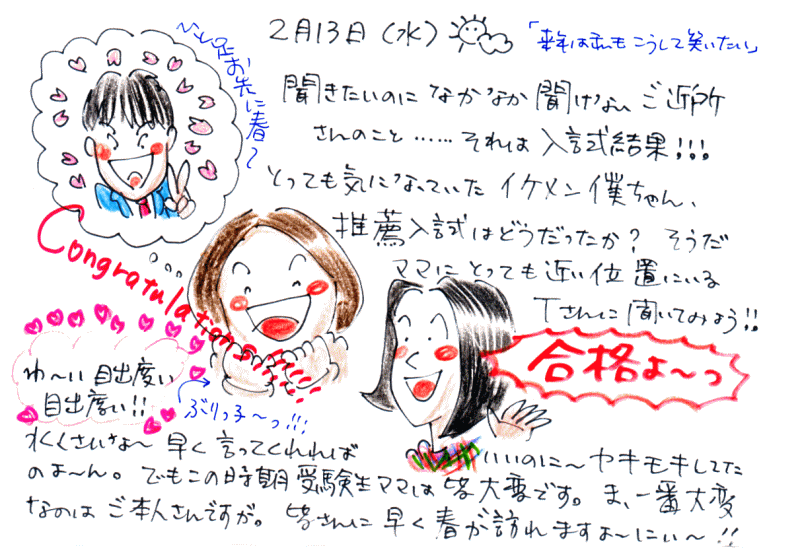 2月13日（水）
「来年は私もこうして笑いたい」
〜ひと足お先に春〜
聞きたいのに なかなか聞けない ご近所
さんのこと……それは 入試結果!!!
とっても気になっていた イケメン僕ちゃん、
推薦入試はどうだったか？ そうだ
ママにとっても近い位置にいる
Tさんに聞いてみよう!!
Congratulations!!
合格よ〜っ
わ〜い 目出度い
目出度い!!
ぶりっ子〜っ!!!
水くさいな〜 早く言ってくれれば いいのに〜 ヤキモキしてた
のよ〜ん。でもこの時期 受験生ママは皆大変です。ま、一番大変
なのは ご本人さんですが。 皆さんに早く春が訪れますよ〜にぃ〜!!